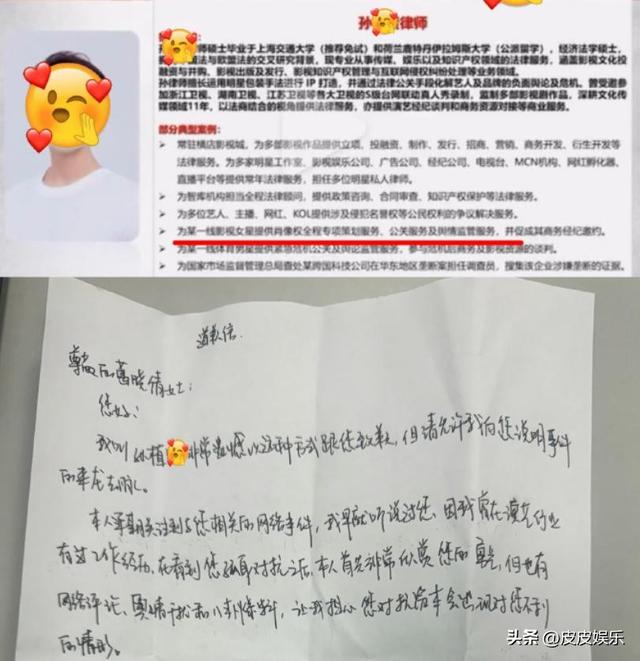 孙 律师
师硕士毕业于上海交通大学（推荐免试）和荷兰鹿特丹伊拉姆斯大学（公派留学），经济法学硕士，
法与欧盟法的交叉研究背景，现专业从事传媒、娱乐以及知识产权领域的法律服务，涵盖影视文化投
融资与并购、影视出版及发行、影视知识产权管理与互联网侵权纠纷处理等业务领域。
孙律师擅长运用明星包装手法进行 IP 打造，并通过法律公关手段化解艺人及品牌的负面舆论及危机。曾受邀参
加浙江卫视、湖南卫视、江苏卫视等各大卫视的S级台网联动真人秀录制，监制多部影视剧作品，深耕文化传
媒领域11年，以法商结合的视角提供法律服务，亦提供演艺经纪谈判和商务资源对接等商业服务。
部分典型案例：
常驻横店影视城，为多部影视作品提供立项、投融资、制作、发行、招商、营销、商务开发、衍生开发等
法律服务。为多家明星工作室、影视娱乐公司、广告公司、经纪公司、电视台、MCN机构、网红孵化器、
直播平台等提供常年法律服务，担任多位明星私人律师。
为智库机构担当全程法律顾问，提供政策咨询、合同审查、知识产权保护等法律服务。
为多位艺人、主播、网红、KOL提供涉及侵犯名誉权等公民权利的争议解决服务。
为某一线影视女星提供肖像权全程专项策划服务、公关服务及舆情监管服务，并促成其商务经纪邀约。
为某一线体育男星提供紧急危机公关及舆论监管服务，参与危机后商务及影视资源的谈判。
为国家市场监督管理总局查处某跨国科技公司在华东地区垄断案担任调查员，搜集该企业涉嫌垄断的证据。
道歉信
尊敬的葛晓倩女士：
您好！
我叫孙 非常遗憾以这种方式跟您致歉，但请允许我向您说明事件
的来龙去脉。
本人早期关注到与您相关的网络事件，我早就听说过您，因我曾在演艺行业
有过工作经历，在看到您 对抗之后，本人首先非常欣赏您的 ，但也有
网络评论、舆情干扰和八卦 ，让我担心您对 会出现对您不利
的情形。
头条 @皮皮娱乐